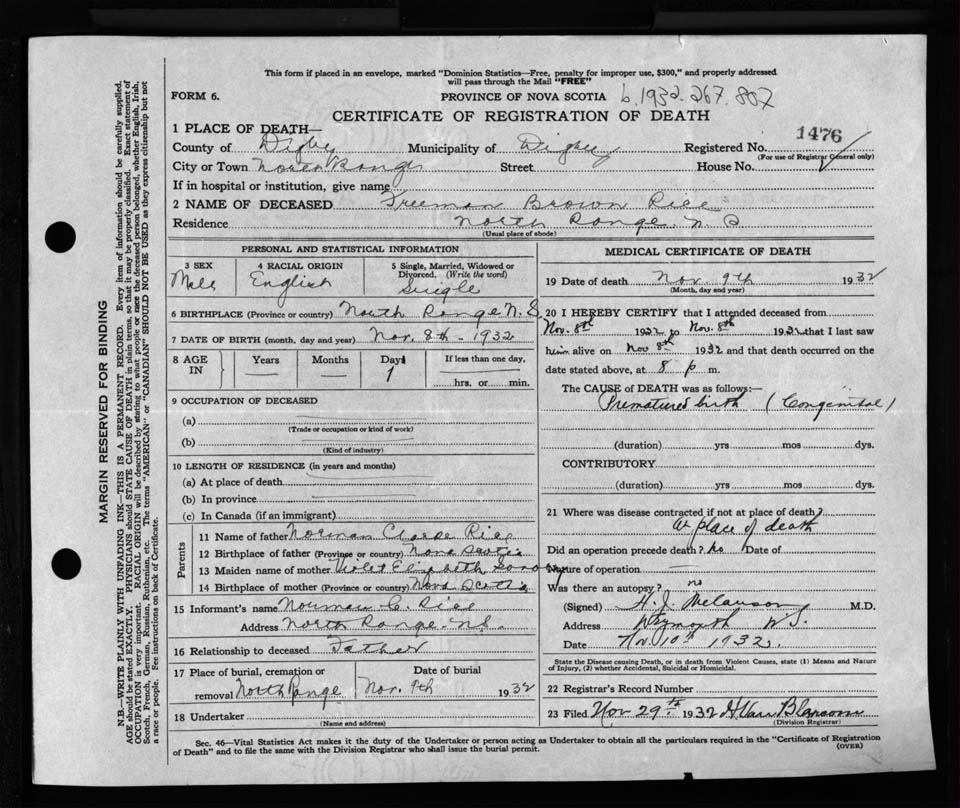 This form if placed in an envelope, marked "Dominion Statistics—Free, penalty for improper use, $300," and properly addressed
will pass through the Mail "FREE"
FORM 6. PROVINCE OF NOVA SCOTIA b. 1932.267.807
CERTIFICATE OF REGISTRATION OF DEATH
1476
1 PLACE OF DEATH—
County of Digby Municipality of Digby Registered No.
(For use of Registrar General only)
City or Town North Range Street House No.
If in hospital or institution, give name
2 NAME OF DECEASED Freeman Brown Rice
Residence North Range. N. S
(Usual place of abode)
PERSONAL AND STATISTICAL INFORMATION
3 SEX 4 RACIAL ORIGIN 5 Single, Married, Widowed or
Divorced. (Write the word)
Male English Single
6 BIRTHPLACE (Province or country) North Range N. S.
7 DATE OF BIRTH (month, day and year) Nov. 8th - 1932
8 AGE IN Years Months Days If less than one day,
— — 1 hrs. or min.
9 OCCUPATION OF DECEASED
(a)
(Trade or occupation or kind of work)
(b)
(Kind of industry)
10 LENGTH OF RESIDENCE (in years and months)
(a) At place of death
(b) In province
(c) In Canada (if an immigrant)
Parents
11 Name of father Norman Rice
12 Birthplace of father (Province or country) Nova Scotia
13 Maiden name of mother Violet Elizabeth
14 Birthplace of mother (Province or country) Nova Scotia
15 Informant's name Norman C. Rice
Address North Range. N.S.
16 Relationship to deceased Father
17 Place of burial, cremation or Date of burial
removal North Range Nov. 9th 1932
18 Undertaker
(Name and address)
MEDICAL CERTIFICATE OF DEATH
19 Date of death Nov. 9th 1932
(Month, day and year)
20 I HEREBY CERTIFY that I attended deceased from
Nov. 8th 1932 to Nov. 8th 1932 that I last saw
him alive on Nov 8th 1932 and that death occurred on the
date stated above, at 8 p m.
The CAUSE of DEATH was as follows:—
Prematured birth (Congenital)
(duration) yrs mos dys.
CONTRIBUTORY
(duration) yrs mos dys.
21 Where was disease contracted if not at place of death?
At place of death
Did an operation precede death? No Date of
Nature of operation —
Was there an autopsy? no
(Signed) H. J. Melanson M.D.
Address Weymouth N.S.
Date Nov. 10th 1932.
State the Disease causing Death, or in death from Violent Causes, state (1) Means and Nature
of Injury, (2) whether Accidental, Suicidal or Homicidal.
22 Registrar's Record Number
23 Filed Nov 29th 1932
(Division Registrar)
Sec. 46—Vital Statistics Act makes it the duty of the Undertaker or person acting as Undertaker to obtain all the particulars required in the "Certificate of Registration
of Death" and to file the same with the Division Registrar who shall issue the burial permit. (OVER)
MARGIN RESERVED FOR BINDING
N.B.—WRITE PLAINLY WITH UNFADING INK—THIS IS A PERMANENT RECORD. Every item of information should be carefully supplied.
AGE should be stated EXACTLY. PHYSICIANS should STATE CAUSE OF DEATH in plain terms, so that it may be properly classified. Exact statement of
OCCUPATION is very important. RACIAL ORIGIN will be described by stating to what people or race the deceased person belonged, whether English, Irish,
Scotch, French, German, Russian, Ruthenian, etc. The terms "AMERICAN" or "CANADIAN" SHOULD NOT BE USED as they express citizenship but not
a race or people. See instructions on back of Certificate.